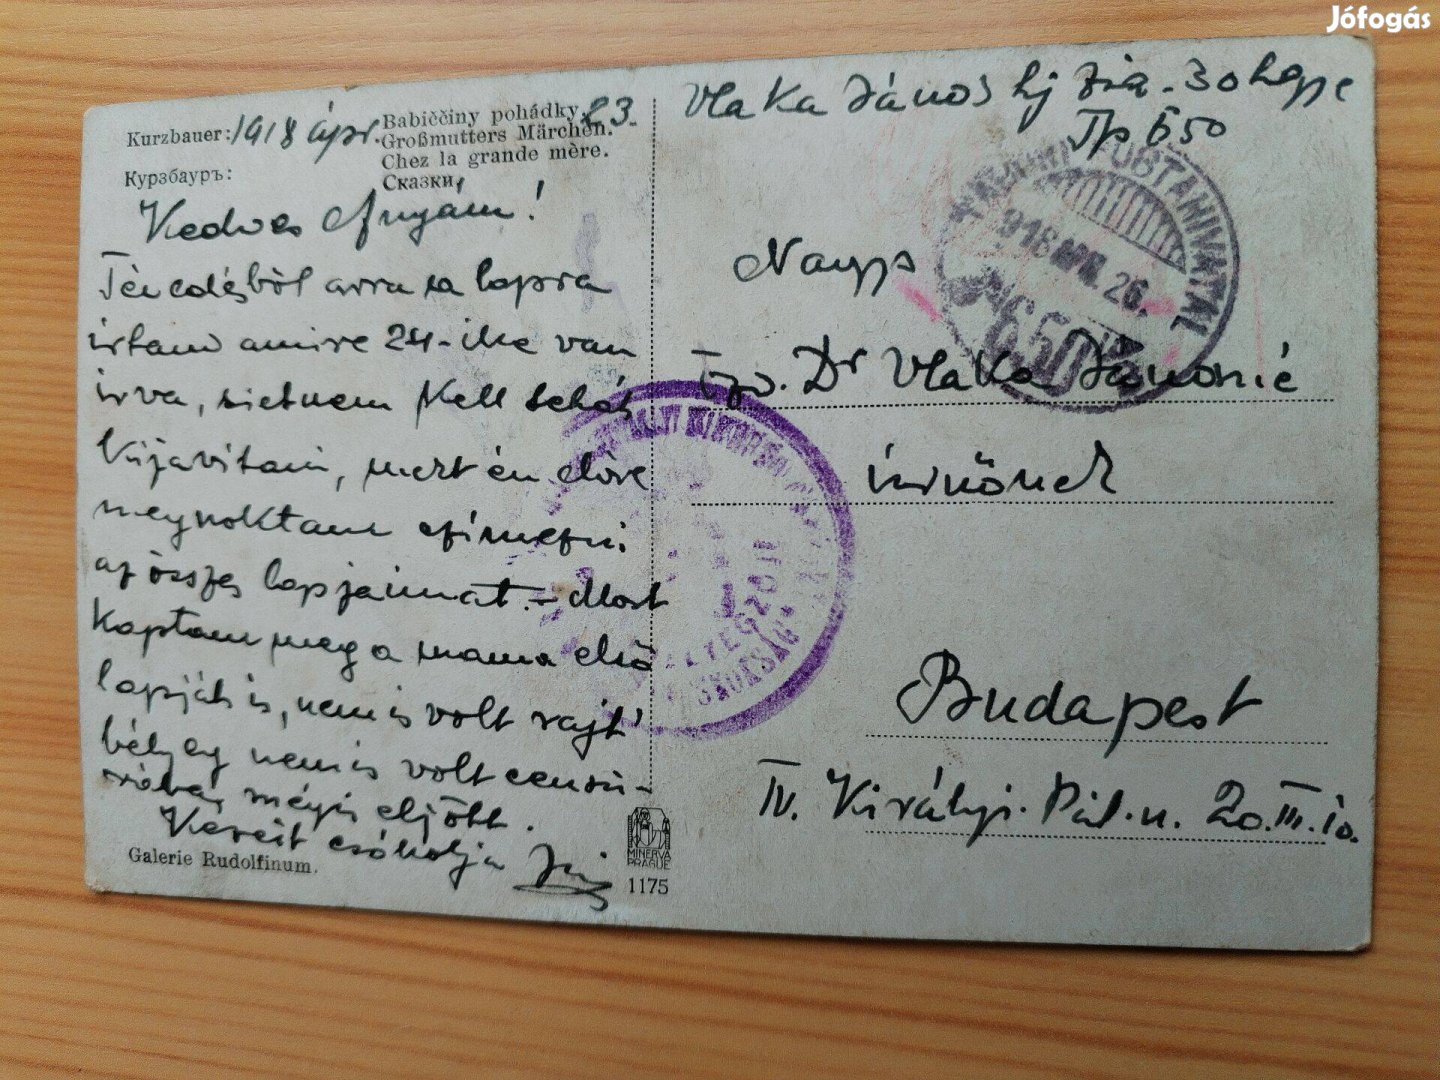 Jófogás
Kurzbauer: 1918 ápr. 23.
Курзбауръ:
Babiččiny pohádky.
Großmutters Märchen.
Chez la grande mère.
Сказки.
Kedves Anyám!
Tévedésből arra a lapra
írtam amire 24-ike van
írva, sietnem kell tehát
kijavítani, mert én előre
megszoktam címezni
az összes lapjaimat. - Most
kaptam meg a mama első
lapját is, nem is volt rajt'
bélyeg nem is volt cenzu-
rába, mégis eljött.
Kezeit csókolja
Galerie Rudolfinum.
MINERVA
PRAGUE
1175
Vlaka János hj 30
Tp 650
TÁBORI POSTAHIVATAL
918 ÁPR. 26.
650
Nagys
Özv. Dr Vlaka Jánosné
úrnőnek
Budapest
IV. Királyi Pál. u. 20. III. 10.